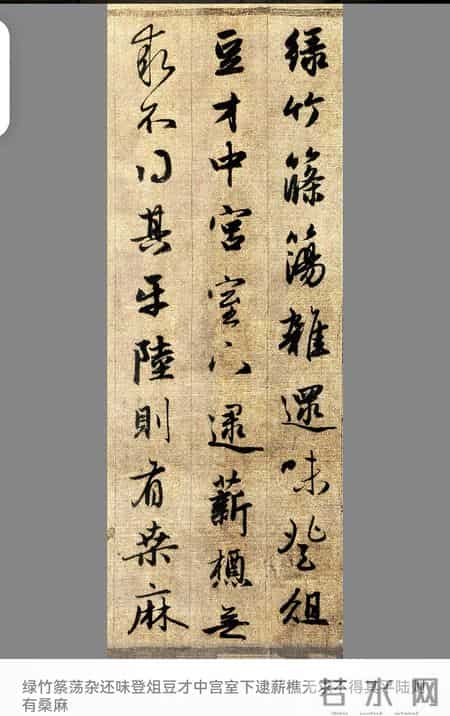 緑竹篠簜雜遝味登俎
豆才中宮室下逮薪樵無
求不得其平陸則有桑麻
绿竹篠荡杂还味登俎豆才中宫室下逮薪樵无求不得其平陆则
有桑麻
若水网